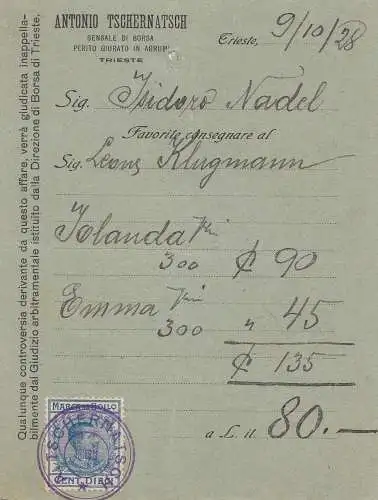 ANTONIO TSCHERNATSCH
SENSALE DI BORSA
PERITO GIURATO IN AGRUMI
TRIESTE
Trieste, 9/10/28
Sig. Isidoro Nadel
Favorite consegnare al
Sig. Leone Klugmann
Iolanda
300 ₵ 90
Emma
300 " 45
₵ 135
a L. it. 80.—
MARCA DA BOLLO
CENT. DIECI
TSCHERNATSC
Qualunque controversia derivante da questo affare, verrà giudicata inappella-
bilmente dal Giudizio arbitramentale istituito dalla Direzione di Borsa di Trieste.